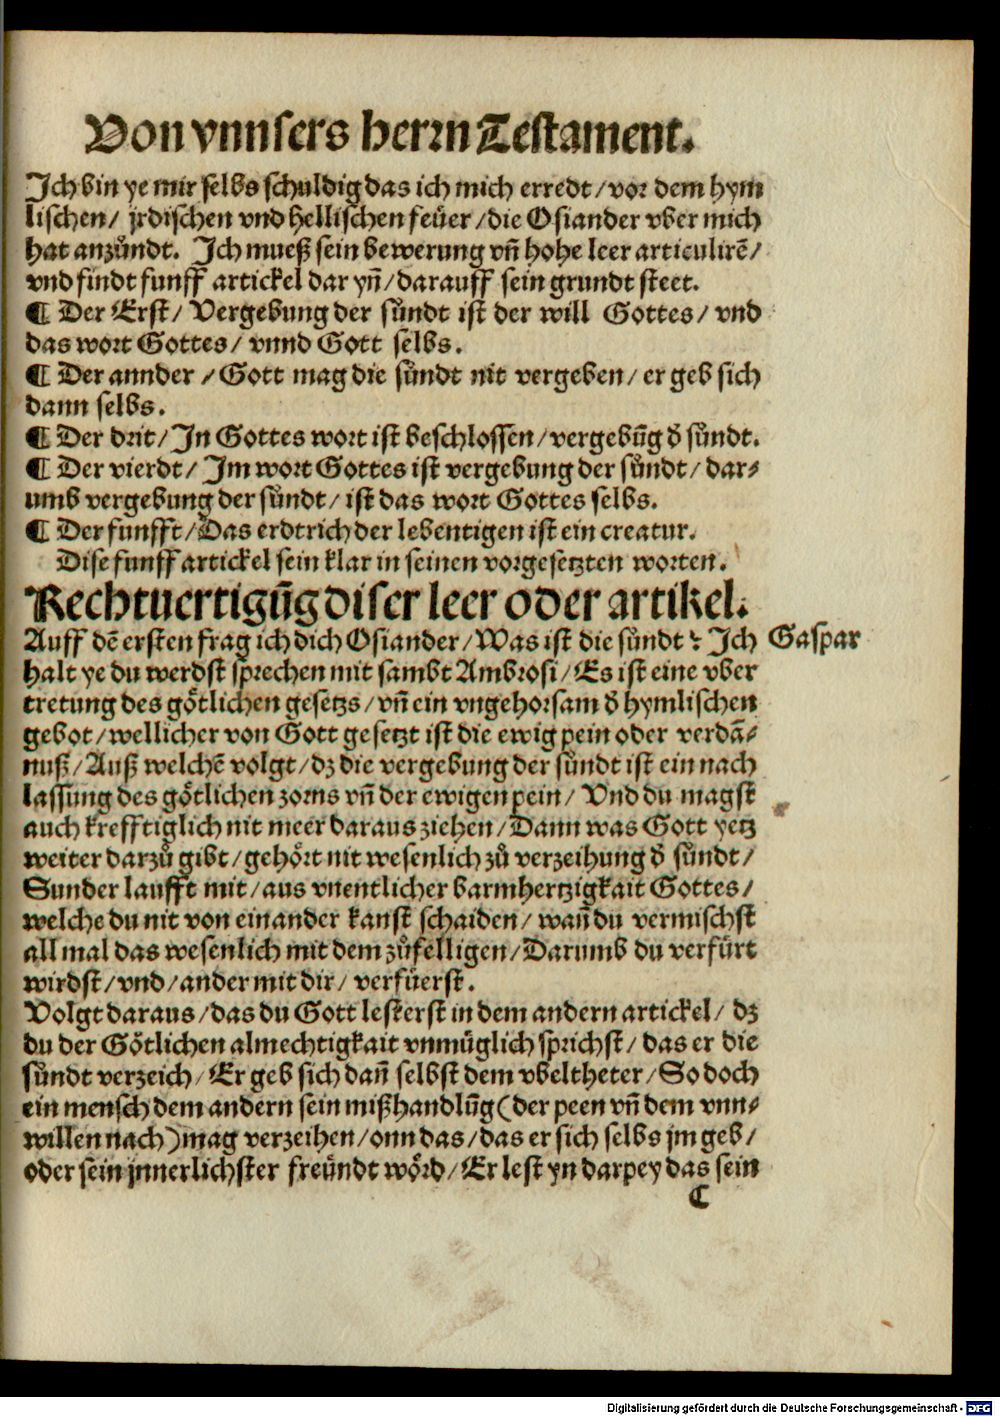 Von vnnsers herrn Testament.
Ich bin ye mir selbs schuldig das ich mich erredt/ vor dem hym
lischen/ jrdischen vnd hellischen feüer/ die Osiander vber mich
hat anzůndt. Ich mueß sein bewerung vñ hohe leer articulirẽ/
vnd findt funff artickel dar yñ/ darauff sein grundt steet.
¶ Der Erst/ Vergebung der sůndt ist der will Gottes/ vnd
das wort Gottes/ vnnd Gott selbs.
¶ Der annder/ Gott mag die sůndt nit vergeben/ er geb sich
dann selbs.
¶ Der drit/ In Gottes wort ist beschlossen/ vergebũg d̕ sůndt.
¶ Der vierdt/ Im wort Gottes ist vergebung der sůndt/ dar⸗
umb vergebung der sůndt/ ist das wort Gottes selbs.
¶ Der funfft/ Das erdtrich der lebentigen ist ein creatur.
Dise funff artickel sein klar in seinen vorgesetzten worten.
Rechtuertigũg diser leer oder artikel.
Auff dẽ ersten frag ich dich Osiander/ Was ist die sůndt? Ich Gaspar
halt ye du werdst sprechen mit sambt Ambrosi/ Es ist eine vber
tretung des gőtlichen gesetzs/ vñ ein vngehorsam d̕ hymlischen
gebot/ wellicher von Gott gesetzt ist die ewig pein oder verdã⸗
nuß/ Auß welchẽ volgt/ dz die vergebung der sůndt ist ein nach
lassung des gőtlichen zorns vñ der ewigen pein/ Vnd du magst
auch krefftiglich nit meer daraus ziehen/ Dann was Gott yetz
weiter darzů gibt/ gehőrt nit wesenlich zů verzeihung d̕ sůndt/
Sunder laufft mit/ aus vnentlicher barmhertzigkait Gottes/
welche du nit von einander kanst schaiden/ wañ du vermischst
all mal das wesenlich mit dem zůfelligen/ Darumb du verfürt
wirdst/ vnd/ ander mit dir/ verfüerst.
Volgt daraus/ das du Gott lesterst in dem andern artickel/ dz
du der Gőtlichen almechtigkait vnmüglich sprichst/ das er die
sůndt verzeich/ Er geb sich dañ selbst dem vbeltheter/ So doch
ein mensch dem andern sein mißhandlũg (der peen vñ dem vnn⸗
willen nach) mag verzeihen/ onn das/ das er sich selbs jm geb/
oder sein jnnerlichster freündt wőrd/ Er lest yn darpey das sein
C
Digitalisierung gefördert durch die Deutsche Forschungsgemeinschaft - DFG